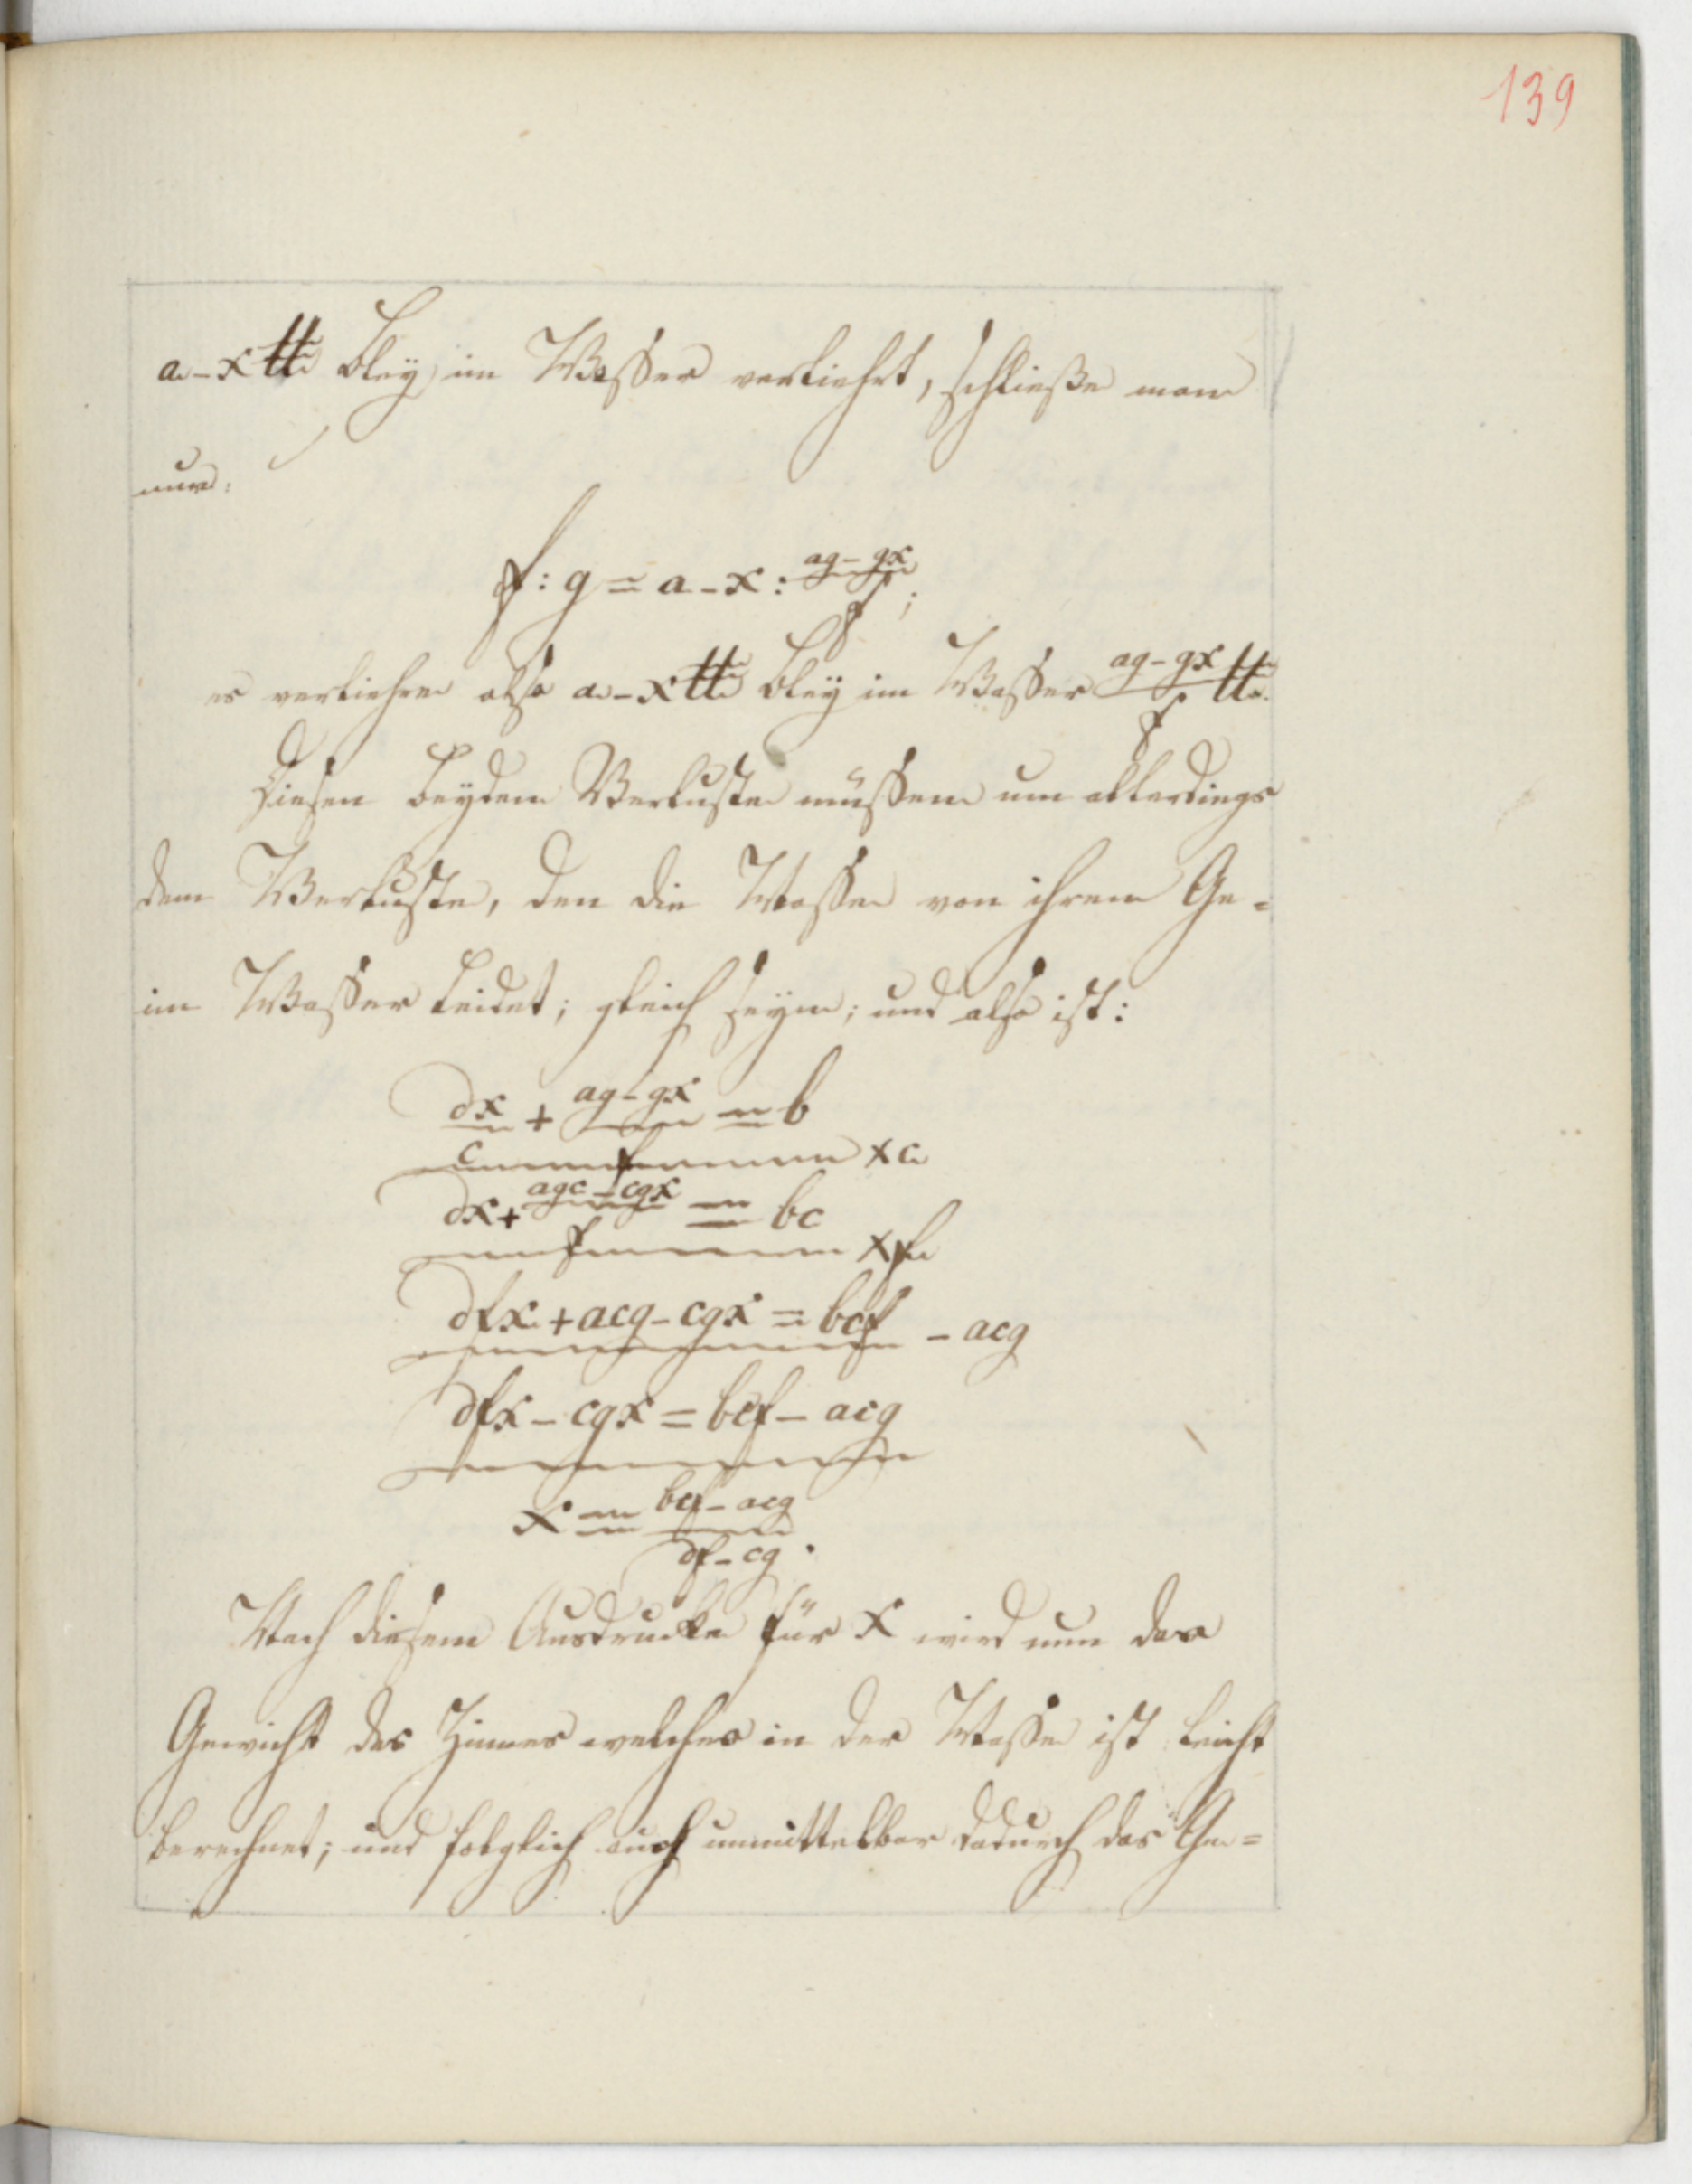 139
a-x ℔ Bley im Wasser verliehrt, schließe man
nun:
f : g = a - x : (ag - gx)/f ;
es verliehren also a-x ℔ Bley im Wasser (ag - gx)/f ℔.
Diesen beyden Verluste müssen um allerdings
dem Verluste, den die Masse von ihrem Ge=
im Wasser leidet; gleich seyn; und also ist:
dx/c + (ag - gx)/f = b
× c
dx + (agc - cgx)/f = bc
× f
dfx + acg - cgx = bcf - acg
dfx - cgx = bcf - acg
x = (bcf - acg)/(df - cg).
Nach diesem Ausdrucke für x wird nun das
Gewicht des Zinnes welches in der Masse ist leicht
berechnet; und folglich auch unmittelbar dadurch das Ge=